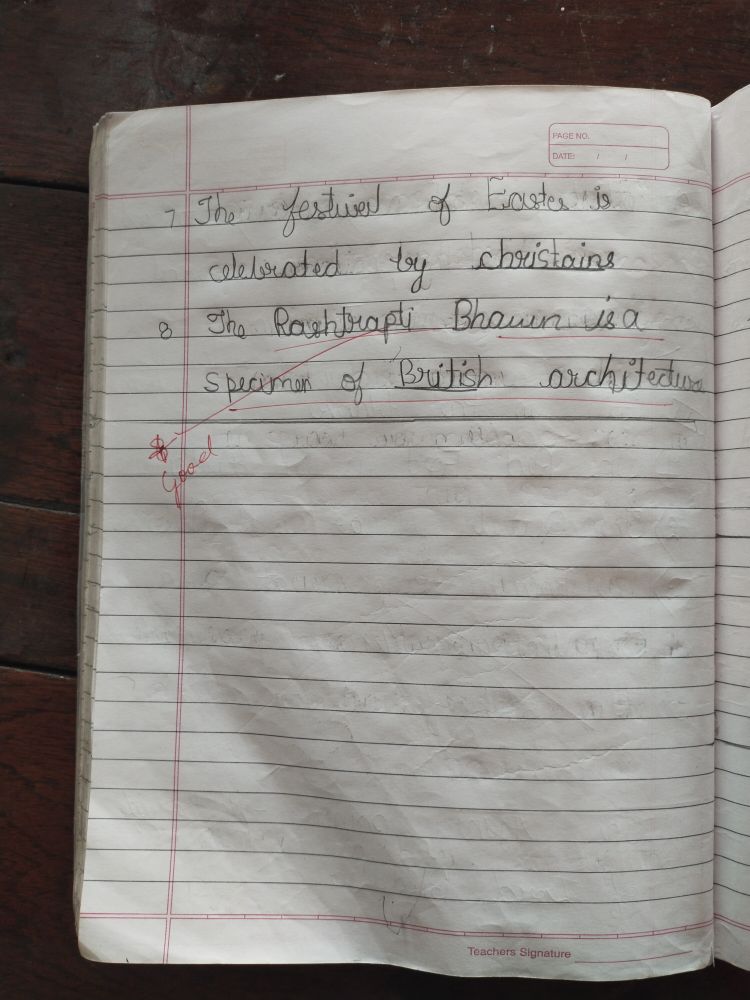 PAGE NO.
DATE: / /
7 The festivel of Easter is
celebrated by christains
8 The Rashtrapti Bhawn is a
specimen of British architecture
Good
Teachers Signature